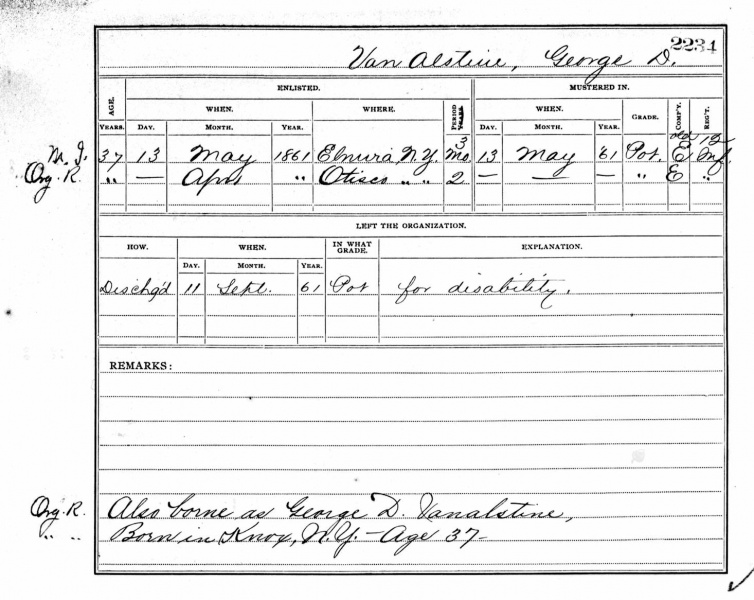 2234
Van Alstine, George D.
AGE. ENLISTED. MUSTERED IN.
WHEN. WHERE. PERIOD YEARS. WHEN. GRADE. COMP'Y. REG'T.
YEARS. DAY. MONTH. YEAR. DAY. MONTH. YEAR.
3 old 12
M. I. 37 13 May 1861 Elmira N.Y. Mo 13 May '61 Pvt. E Inf
Org. R. " — Apr " Otisco " " 2 — — " E "
LEFT THE ORGANIZATION.
HOW. WHEN. IN WHAT GRADE. EXPLANATION.
DAY. MONTH. YEAR.
Dischg'd 11 Sept. 61 Pvt for disability.
REMARKS:
Org. R. Also borne as George D. Vanalstine,
" " Born in Knox, N.Y. - Age 37 -